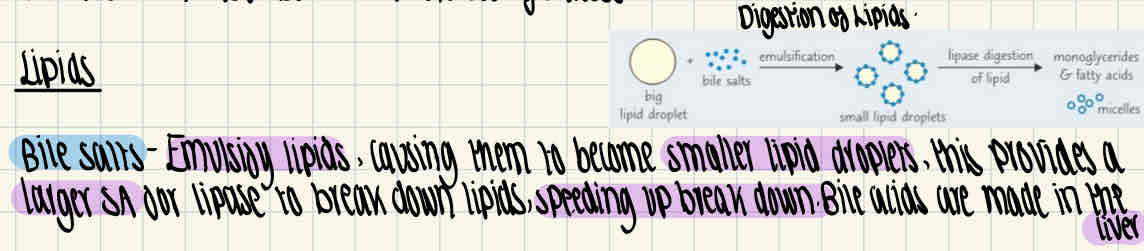 Digestion of Lipids.
Lipids
big
lipid droplet
+
bile salts
emulsification
small lipid droplets
lipase digestion
of lipid
monoglycerides
& fatty acids
micelles
Bile salts - Emulsify lipids, causing them to become smaller lipid droplets, this provides a
larger SA for lipase to break down lipids, speeding up break down. Bile acids are made in the
liver